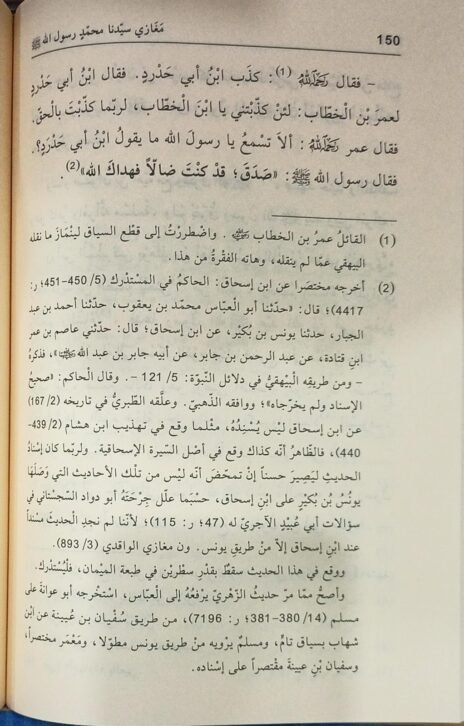 150
مَغَازي سيّدنا محمّدٍ رسول الله ﷺ
- فقال رَحِمَهُ اللَّهُ (1): كذَب ابْنُ أبي حَدْردٍ. فقال ابْنُ أبي حَدْردٍ
لعمرَ بْن الْخطّاب: لئنْ كذّبْتني يا ابْنَ الْخطّاب، لربّما كذّبْتَ بالْحقّ.
فقال عمر رَحِمَهُ اللَّهُ: ألاَ تسْمعُ يا رسولَ الله ما يقولُ ابْنُ أبي حَدْرَدٍ؟.
فقال رسول الله ﷺ: «صدَقَ؛ قدْ كنْتَ ضالّاً فهداكَ الله»(2).
(1) القائلُ عمرُ بن الخطاب. واضطررْتُ إلى قطْع السياق ليَنْمازَ ما نقله
البيهقي عمّا لم ينقله، وهاته الفقْرةُ من هذا.
(2) أخرجه مختصَرا عن ابن إسحاق: الحاكمُ في المسْتدْرك (5/ 450-451؛ ر:
4417)؛ قال: «حدّثنا أبو العبّاس محمّد بن يعقوب، حدّثنا أحمد بن عبد
الجبار، حدثنا يونس بن بُكيْر، عن ابن إسحاق؛ قال: حدّثني عاصم بن عمر
ابن قتادة، عن عبد الرحمن بن جابر، عن أبيه جابر بن عبد الله»، فذكرهُ
- ومن طريقه الْبيْهقيُّ في دلائل النبوّة: 5/ 121 -. وقال الْحاكم: «صحيحُ
الإسناد ولم يخرّجاه»؛ ووافقه الذهبيّ. وعلّقه الطّبريُّ في تاريخه (2/ 167)
عن ابن إسحاق ليْس يُسْنِدُهُ، مثْلما وقع في تهذيب ابن هشام (2/ 439-
440)، فالظّاهرُ أنّه كذاك وقع في أصْل السيرة الإسحاقية. ولربما كان إسْنادُ
الحديثِ ليَصِيرَ حسناً إنْ تمحّضَ أنّه ليْس من تلْك الأحاديث التي وَصَلَها
يونُسُ بْن بُكيْرٍ على ابْنِ إسحاق، حسْبَما علّل جِرْحَتَهُ أبو دواد السجستاني في
سؤالات أبي عُبيْدٍ الآجريّ له (47؛ ر: 115)؛ لأنّنا لم نجدِ الْحديثَ مسْنَداً
عند ابْنِ إسحاق إلاّ منْ طريق يونس. ون مغازي الواقدي (3/ 893).
ووقع في هذا الحديث سقطٌ بقدْر سطْريْن في طبعة الميْمان، فلْيُسْتدْرك.
وأصحُّ ممّا مرّ حديثُ الزّهْريّ يرْفعُهُ إلى الْعبّاس، اسْتخْرجه أبو عوانةَ على
مسلم (14/ 380-381؛ ر: 7196)، من طريق سُفْيان بن عُيينة عن ابْن
شهاب بسياق تامٍّ، ومسلم يرْويه منْ طريق يونس مطوّلا، ومَعْمر مختصراً،
وسفيان بْنِ عيينةَ مقْتصراً على إسْناده.